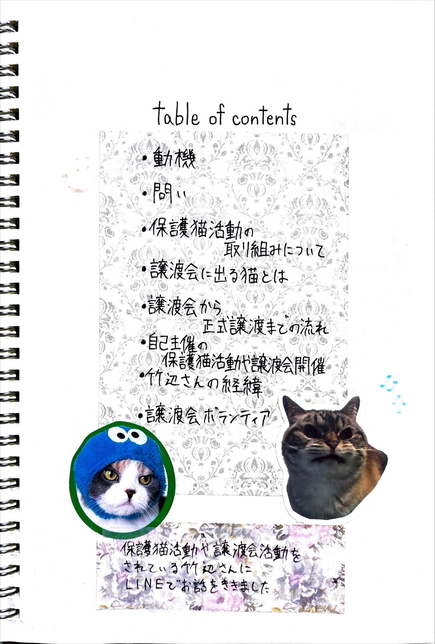 table of contents
・動機
・問い
・保護猫活動の
取り組みについて
・譲渡会に出る猫とは
・譲渡会から
正式譲渡までの流れ
・自己主催の
保護猫活動や譲渡会開催
・竹辺さんの経緯
・譲渡会ボランティア
保護猫活動や譲渡会活動を
されている竹辺さんに
LINEでお話をききました